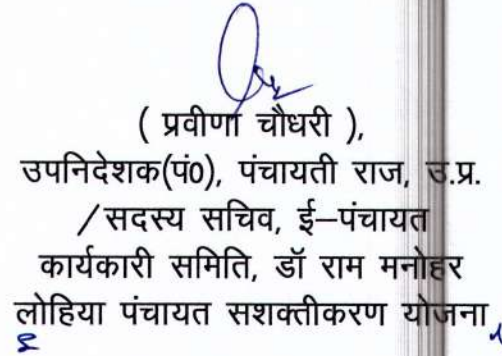 ( प्रवीणा चौधरी ),
उपनिदेशक(पं0), पंचायती राज, उ.प्र.
/सदस्य सचिव, ई–पंचायत
कार्यकारी समिति, डॉ राम मनोहर
लोहिया पंचायत सशक्तीकरण योजना